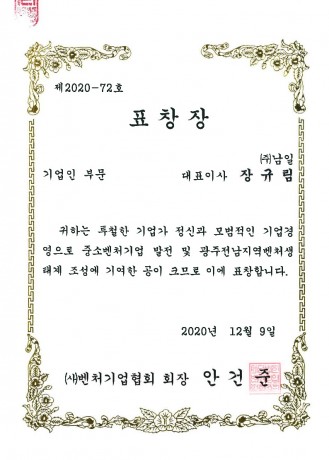 제2020-72호
표창장
㈜남일
기업인 부문 대표이사 장규림
귀하는 투철한 기업가 정신과 모범적인 기업경
영으로 중소벤처기업 발전 및 광주전남지역벤처생
태계 조성에 기여한 공이 크므로 이에 표창합니다.
2020년 12월 9일
(사)벤처기업협회 회장 안건준